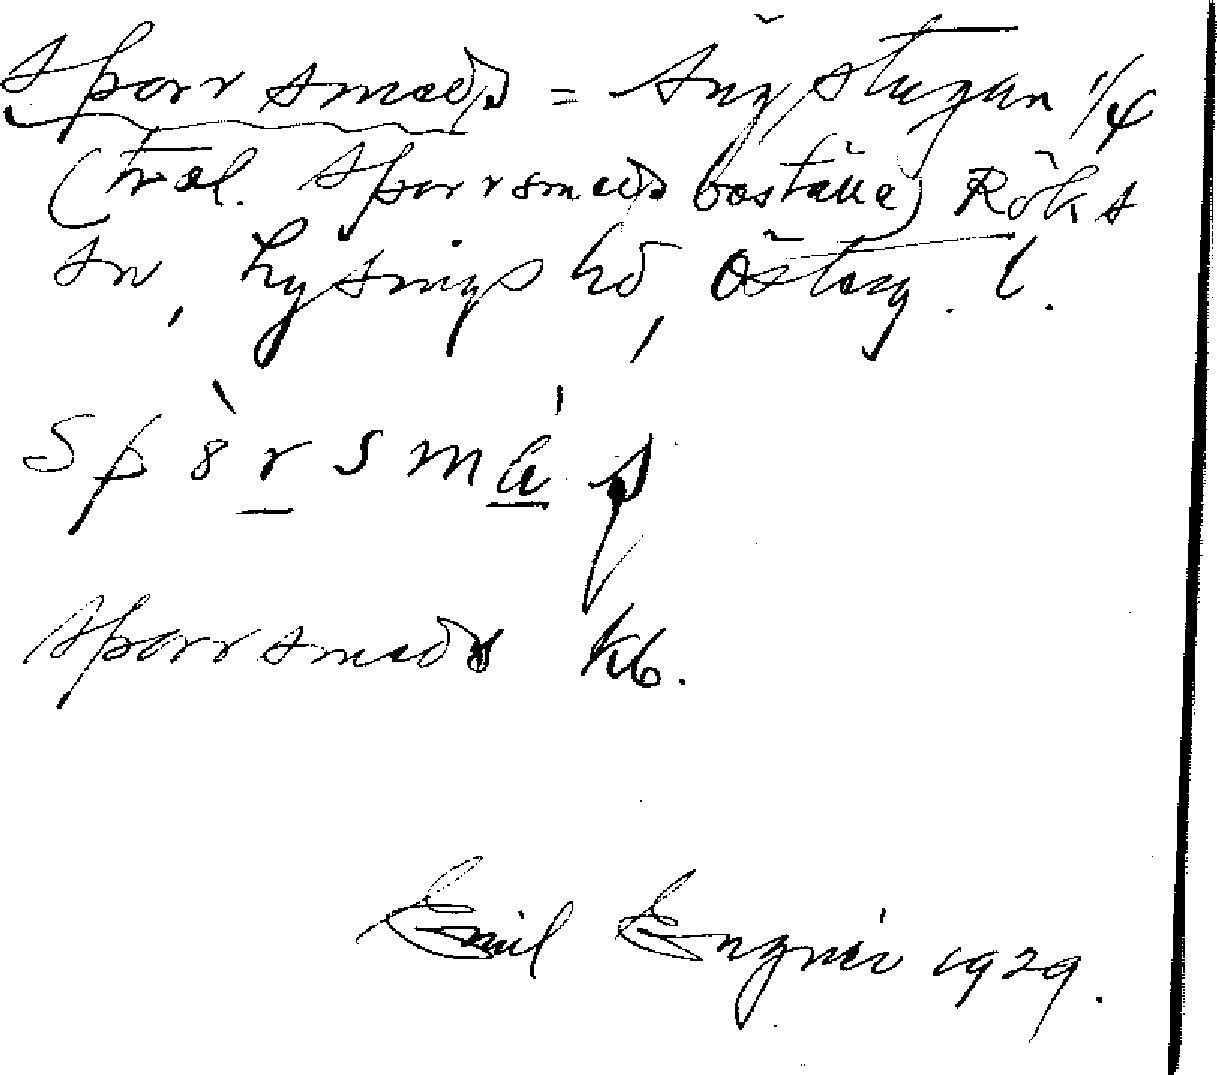 Sporrsmeds = Ängstugan 1/4
(trol. Sporrsmedsboställe) Röks
sn, Lysings hd, Österg. l.
Sporrsmeds kb.
Emil Engnér 1929.